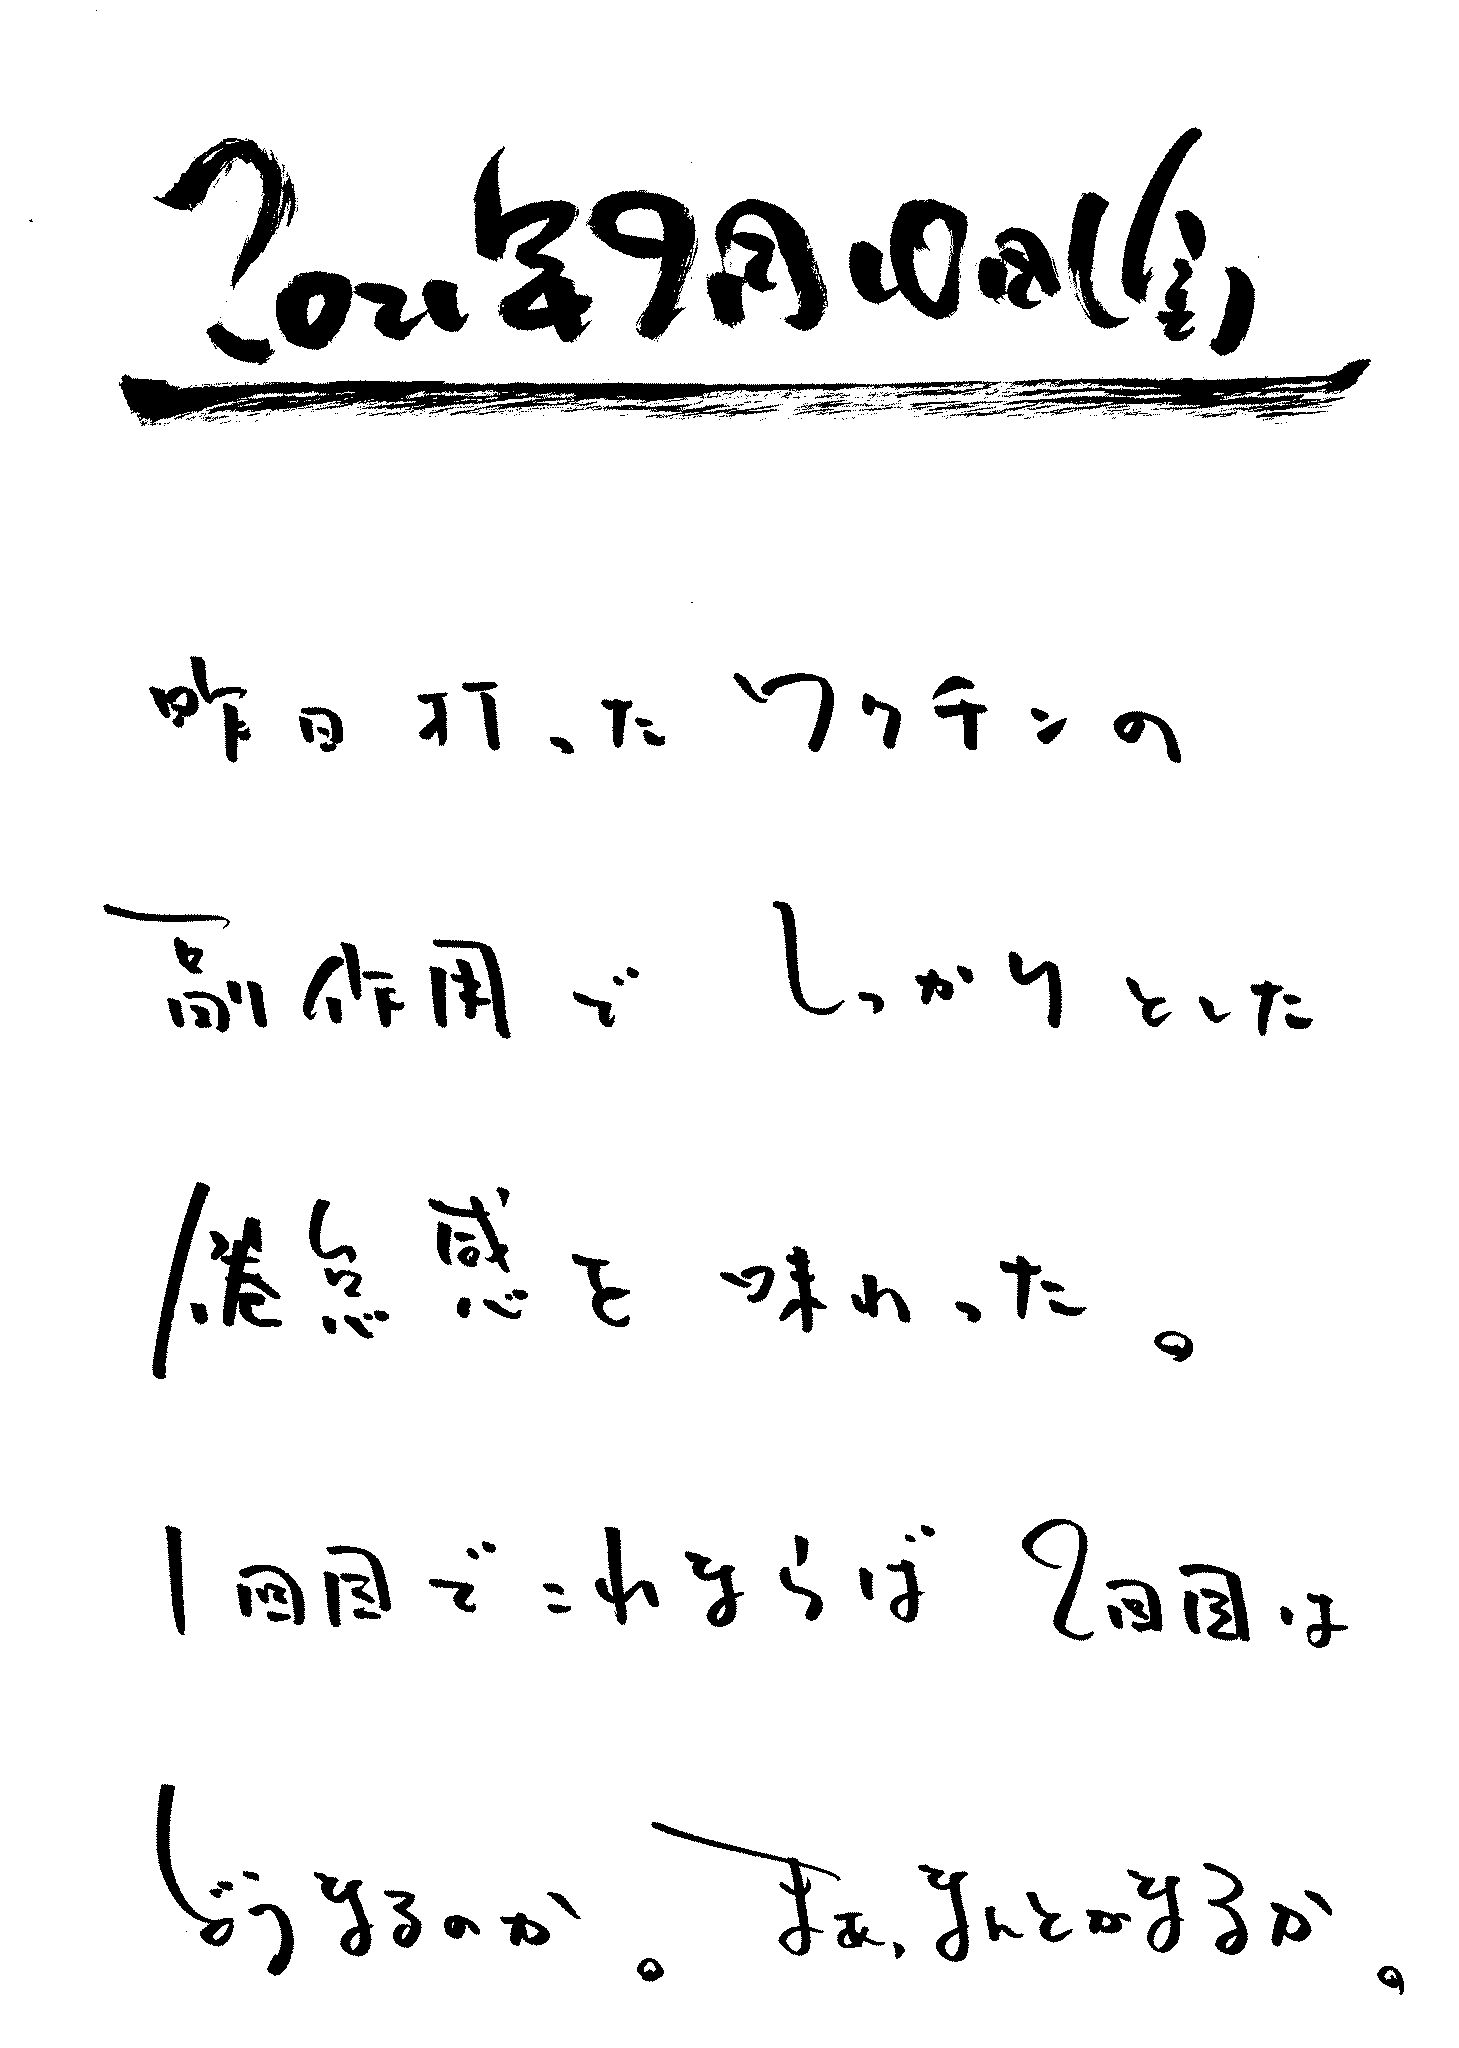 2021年9月10日(金)
昨日打ったワクチンの
副作用でしっかりとした
倦怠感を味わった。
1回目でこれならば2回目は
どうなるのか。まあ、なんとかなるか。